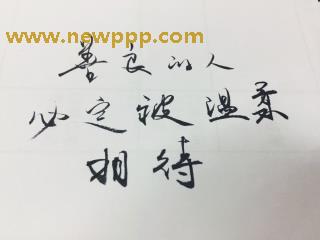 www.newppp.com
善良的人
必定被温柔
相待